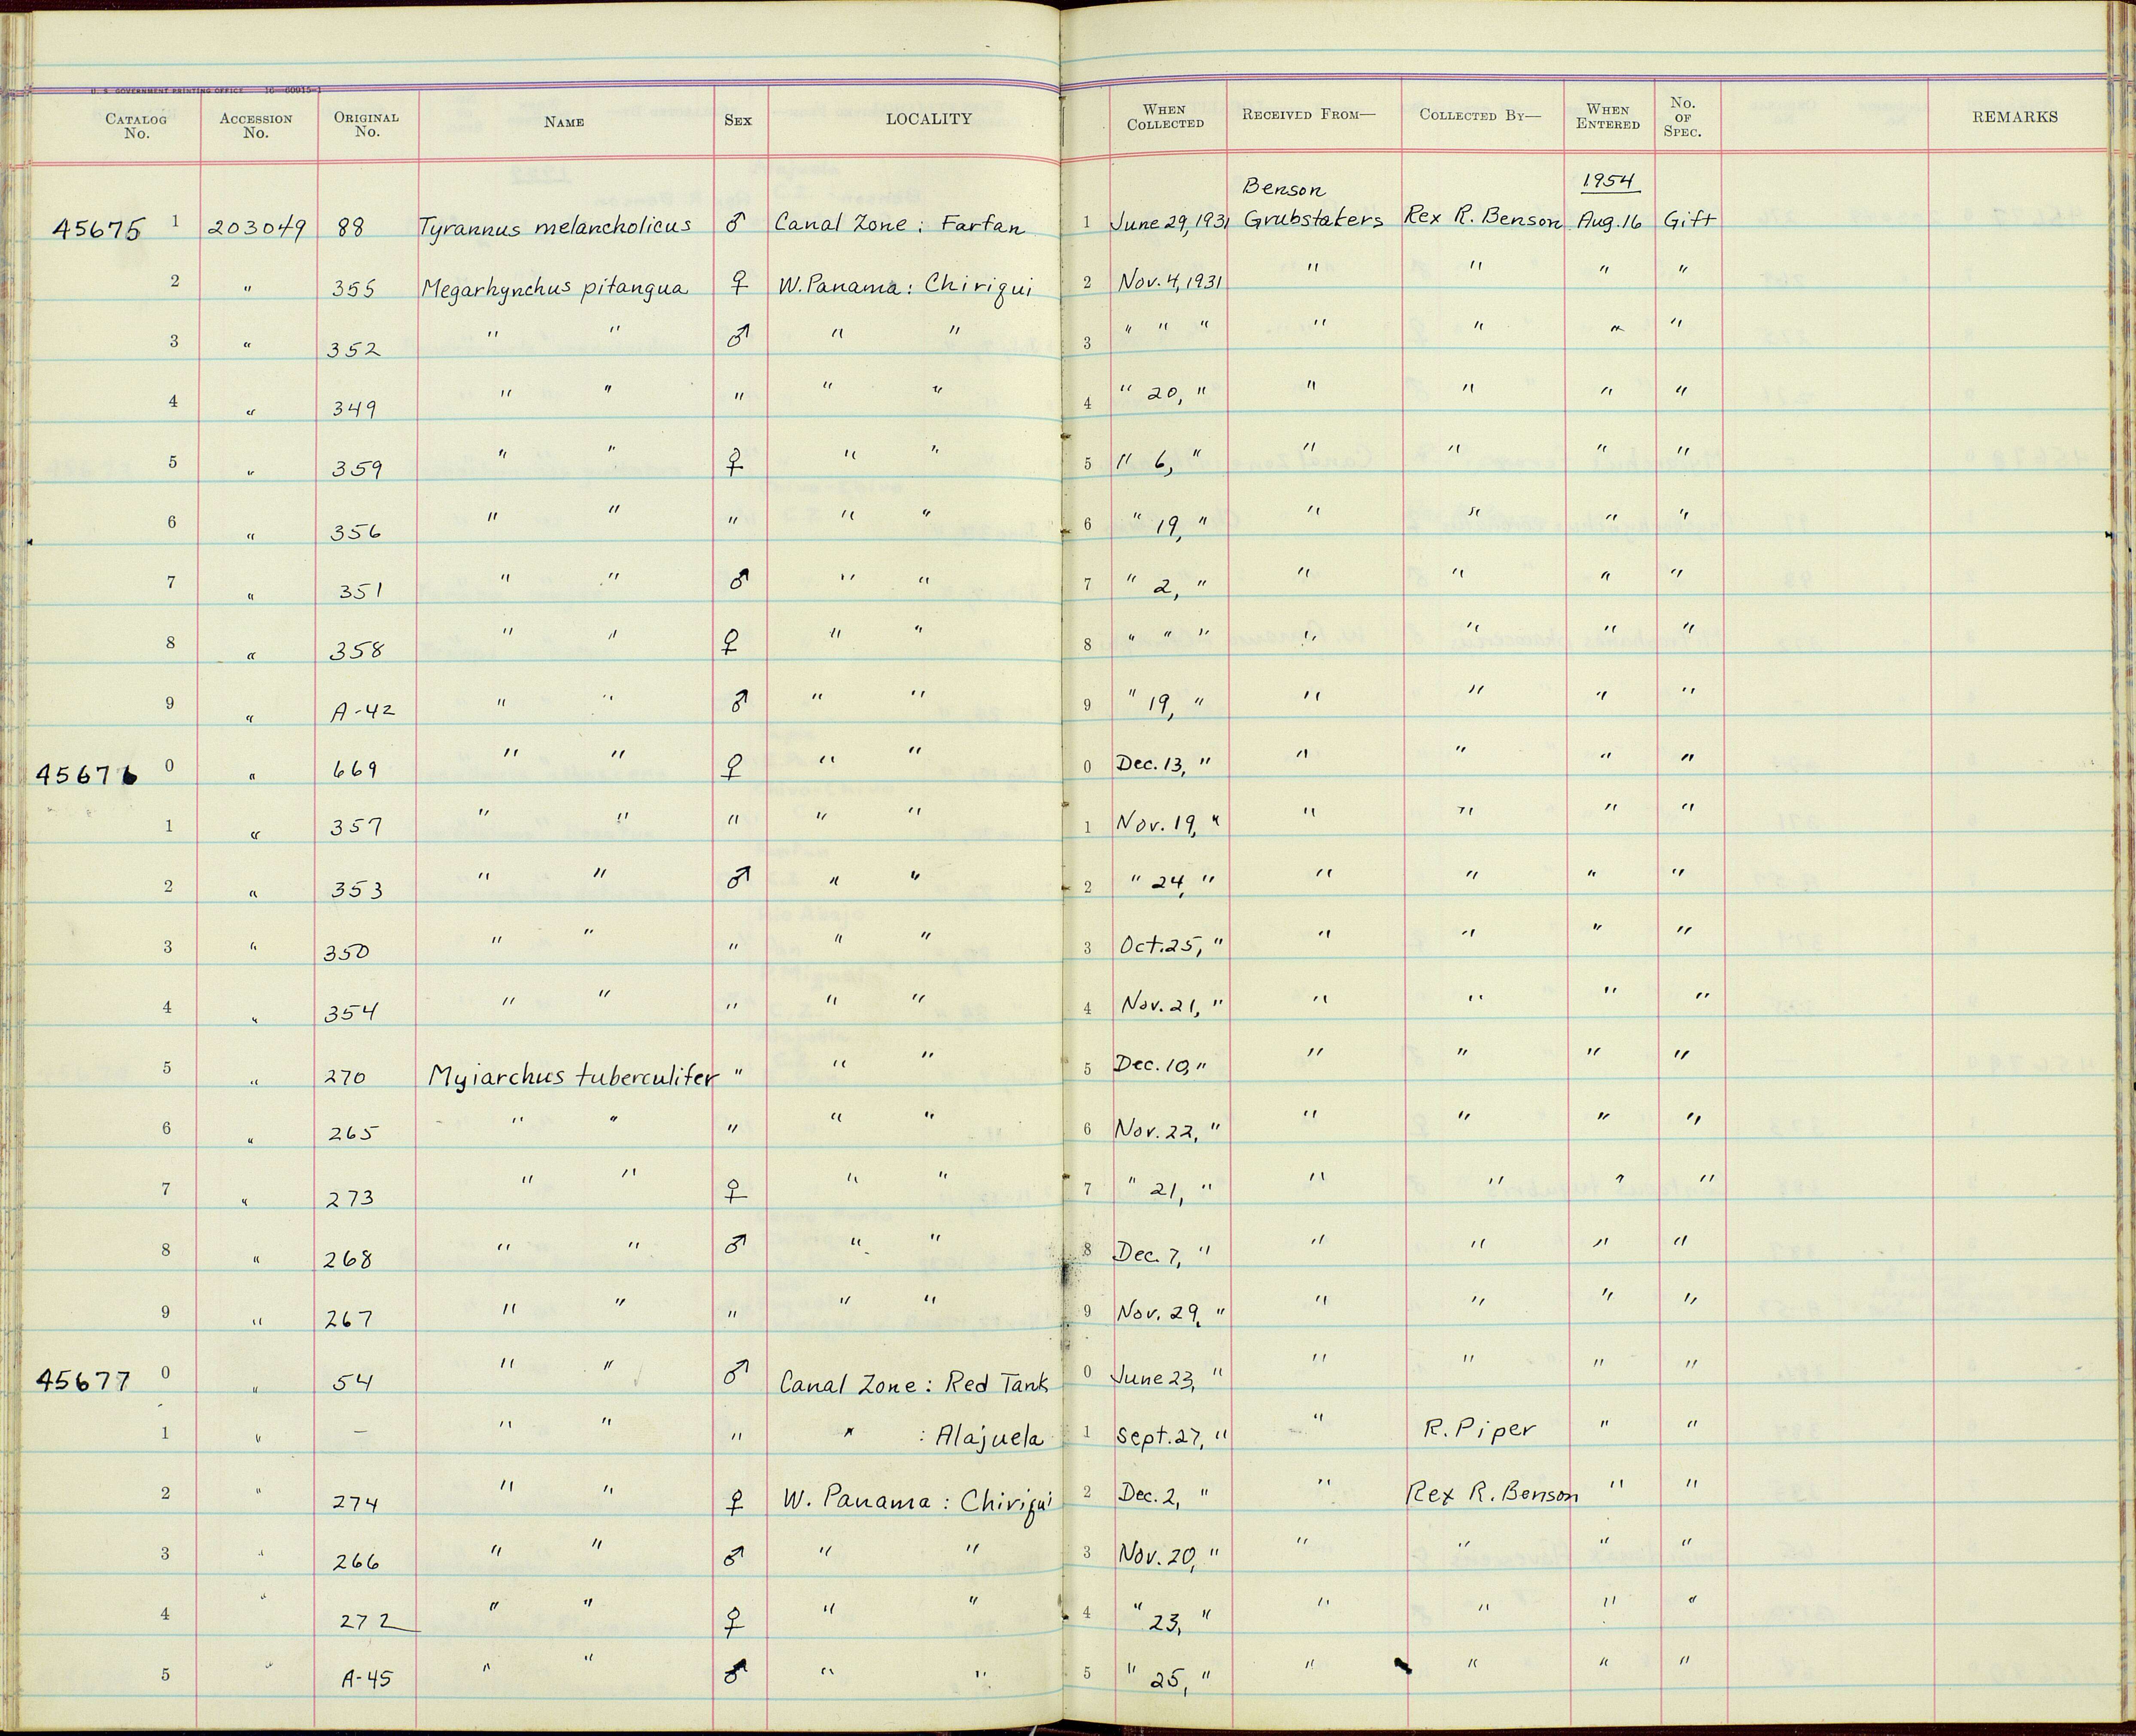 U. S. GOVERNMENT PRINTING OFFICE 16—60915-1
CATALOG No. ACCESSION No. ORIGINAL No. NAME SEX LOCALITY WHEN COLLECTED RECEIVED FROM— COLLECTED BY— WHEN ENTERED No. OF SPEC. REMARKS
Benson 1954
45675 1 203049 88 Tyrannus melancholicus ♂ Canal Zone : Farfan 1 June 29, 1931 Grubstakers Rex R. Benson Aug. 16 Gift
2 " 355 Megarhynchus pitangua ♀ W. Panama : Chiriqui 2 Nov. 4, 1931 " " " "
3 " 352 " " ♂ " " 3 " " " " " " "
4 " 349 " " " " " 4 " 20, " " " " "
5 " 359 " " ♀ " " 5 " 6, " " " " "
6 " 356 " " " " " 6 " 19, " " " " "
7 " 351 " " ♂ " " 7 " 2, " " " " "
8 " 358 " " ♀ " " 8 " " " " " " "
9 " A-42 " " ♂ " " 9 " 19, " " " " "
45676 0 " 669 " " ♀ " " 0 Dec. 13, " " " " "
1 " 357 " " " " " 1 Nov. 19, " " " " "
2 " 353 " " ♂ " " 2 " 24, " " " " "
3 " 350 " " " " " 3 Oct. 25, " " " " "
4 " 354 " " " " " 4 Nov. 21, " " " " "
5 " 270 Myiarchus tuberculifer " " " 5 Dec. 10, " " " " "
6 " 265 " " " " " 6 Nov. 22, " " " " "
7 " 273 " " ♀ " " 7 " 21, " " " " "
8 " 268 " " ♂ " " 8 Dec. 7, " " " " "
9 " 267 " " " " " 9 Nov. 29, " " " " "
45677 0 " 54 " " ♂ Canal Zone : Red Tank 0 June 23, " " " " "
1 " — " " " " : Alajuela 1 Sept. 27, " " R. Piper " "
2 " 274 " " ♀ W. Panama : Chiriqui 2 Dec. 2, " " Rex R. Benson " "
3 " 266 " " ♂ " " 3 Nov. 20, " " " " "
4 " 272 " " ♀ " " 4 " 23, " " " " "
5 " A-45 " " ♂ " " 5 " 25, " " " " "